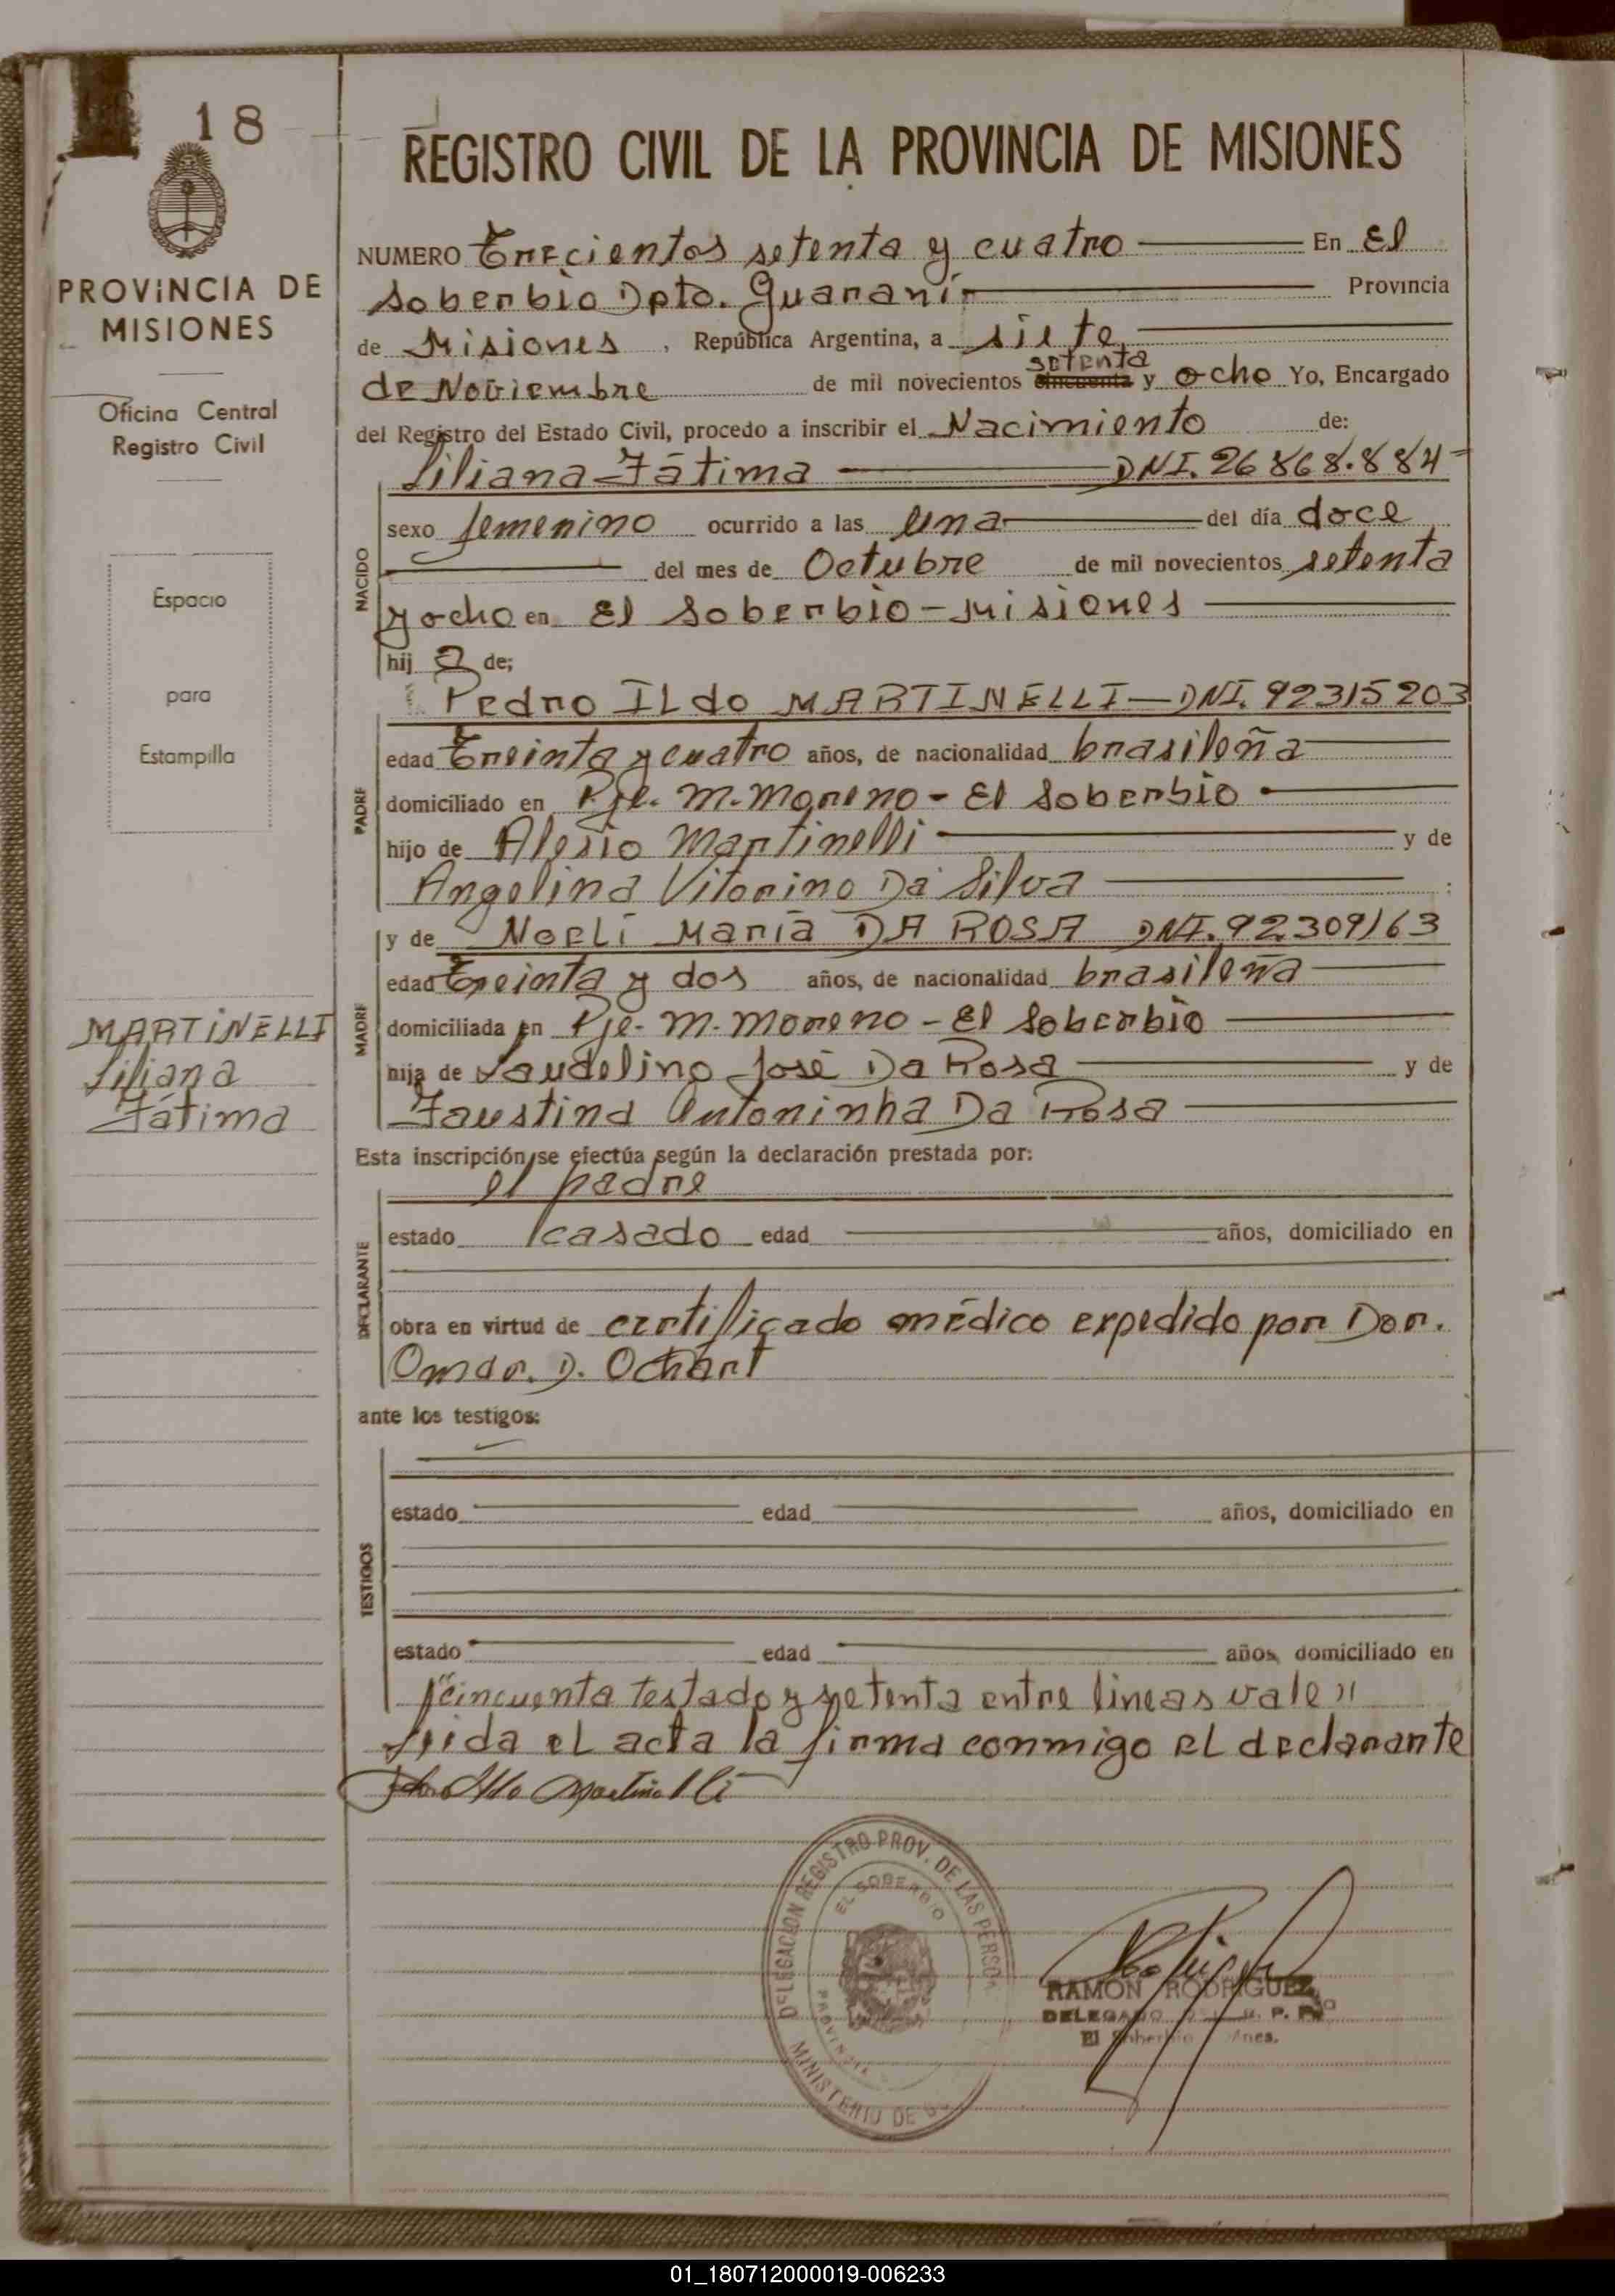 18
PROVINCIA DE
MISIONES
Oficina Central
Registro Civil
Espacio
para
Estampilla
MARTINELLI
Liliana
Fátima
REGISTRO CIVIL DE LA PROVINCIA DE MISIONES
NUMERO Trecientos setenta y cuatro En El
Soberbio Dpto. Guaraní Provincia
de Misiones, República Argentina, a siete
setenta
de Noviembre de mil novecientos cincuenta y ocho Yo, Encargado
del Registro del Estado Civil, procedo a inscribir el Nacimiento de:
Liliana Fátima DNI. 26868.884
NACIDO
sexo femenino ocurrido a las Una del día doce
del mes de Octubre de mil novecientos setenta
y ocho en El Soberbio - Misiones
hij a de;
Pedro ILdo MARTINELLI - DNI. 92315203
PADRE
edad Treinta y cuatro años, de nacionalidad brasileña
domiciliado en Pje. M. Moreno - El Soberbio
hijo de Alesio Martinelli y de
Angelina Vitorino Da Silva
y de Noeli María DA ROSA DNI. 92.309163
MADRE
edad Treinta y dos años, de nacionalidad brasileña
domiciliada en Pje. M. Moreno - El Soberbio
hija de Laudelino José Da Rosa y de
Faustina Antoninha Da Rosa
Esta inscripción se efectúa según la declaración prestada por:
el padre
DECLARANTE
estado casado edad años, domiciliado en
obra en virtud de certificado médico expedido por Dor.
Omar. D. Ochart
ante los testigos:
TESTIGOS
estado edad años, domiciliado en
estado edad años, domiciliado en
"cincuenta testado y setenta entre lineas vale"
Leida el acta la firma conmigo el declarante
Ildo Martinelli
DELEGACION REGISTRO PROV. DE LAS PERSO
EL SOBERBIO
MINISTERIO DE
RAMON RODRIGUEZ
DELEGADO R. P. P.
El Soberbio Mnes.
01_180712000019-006233